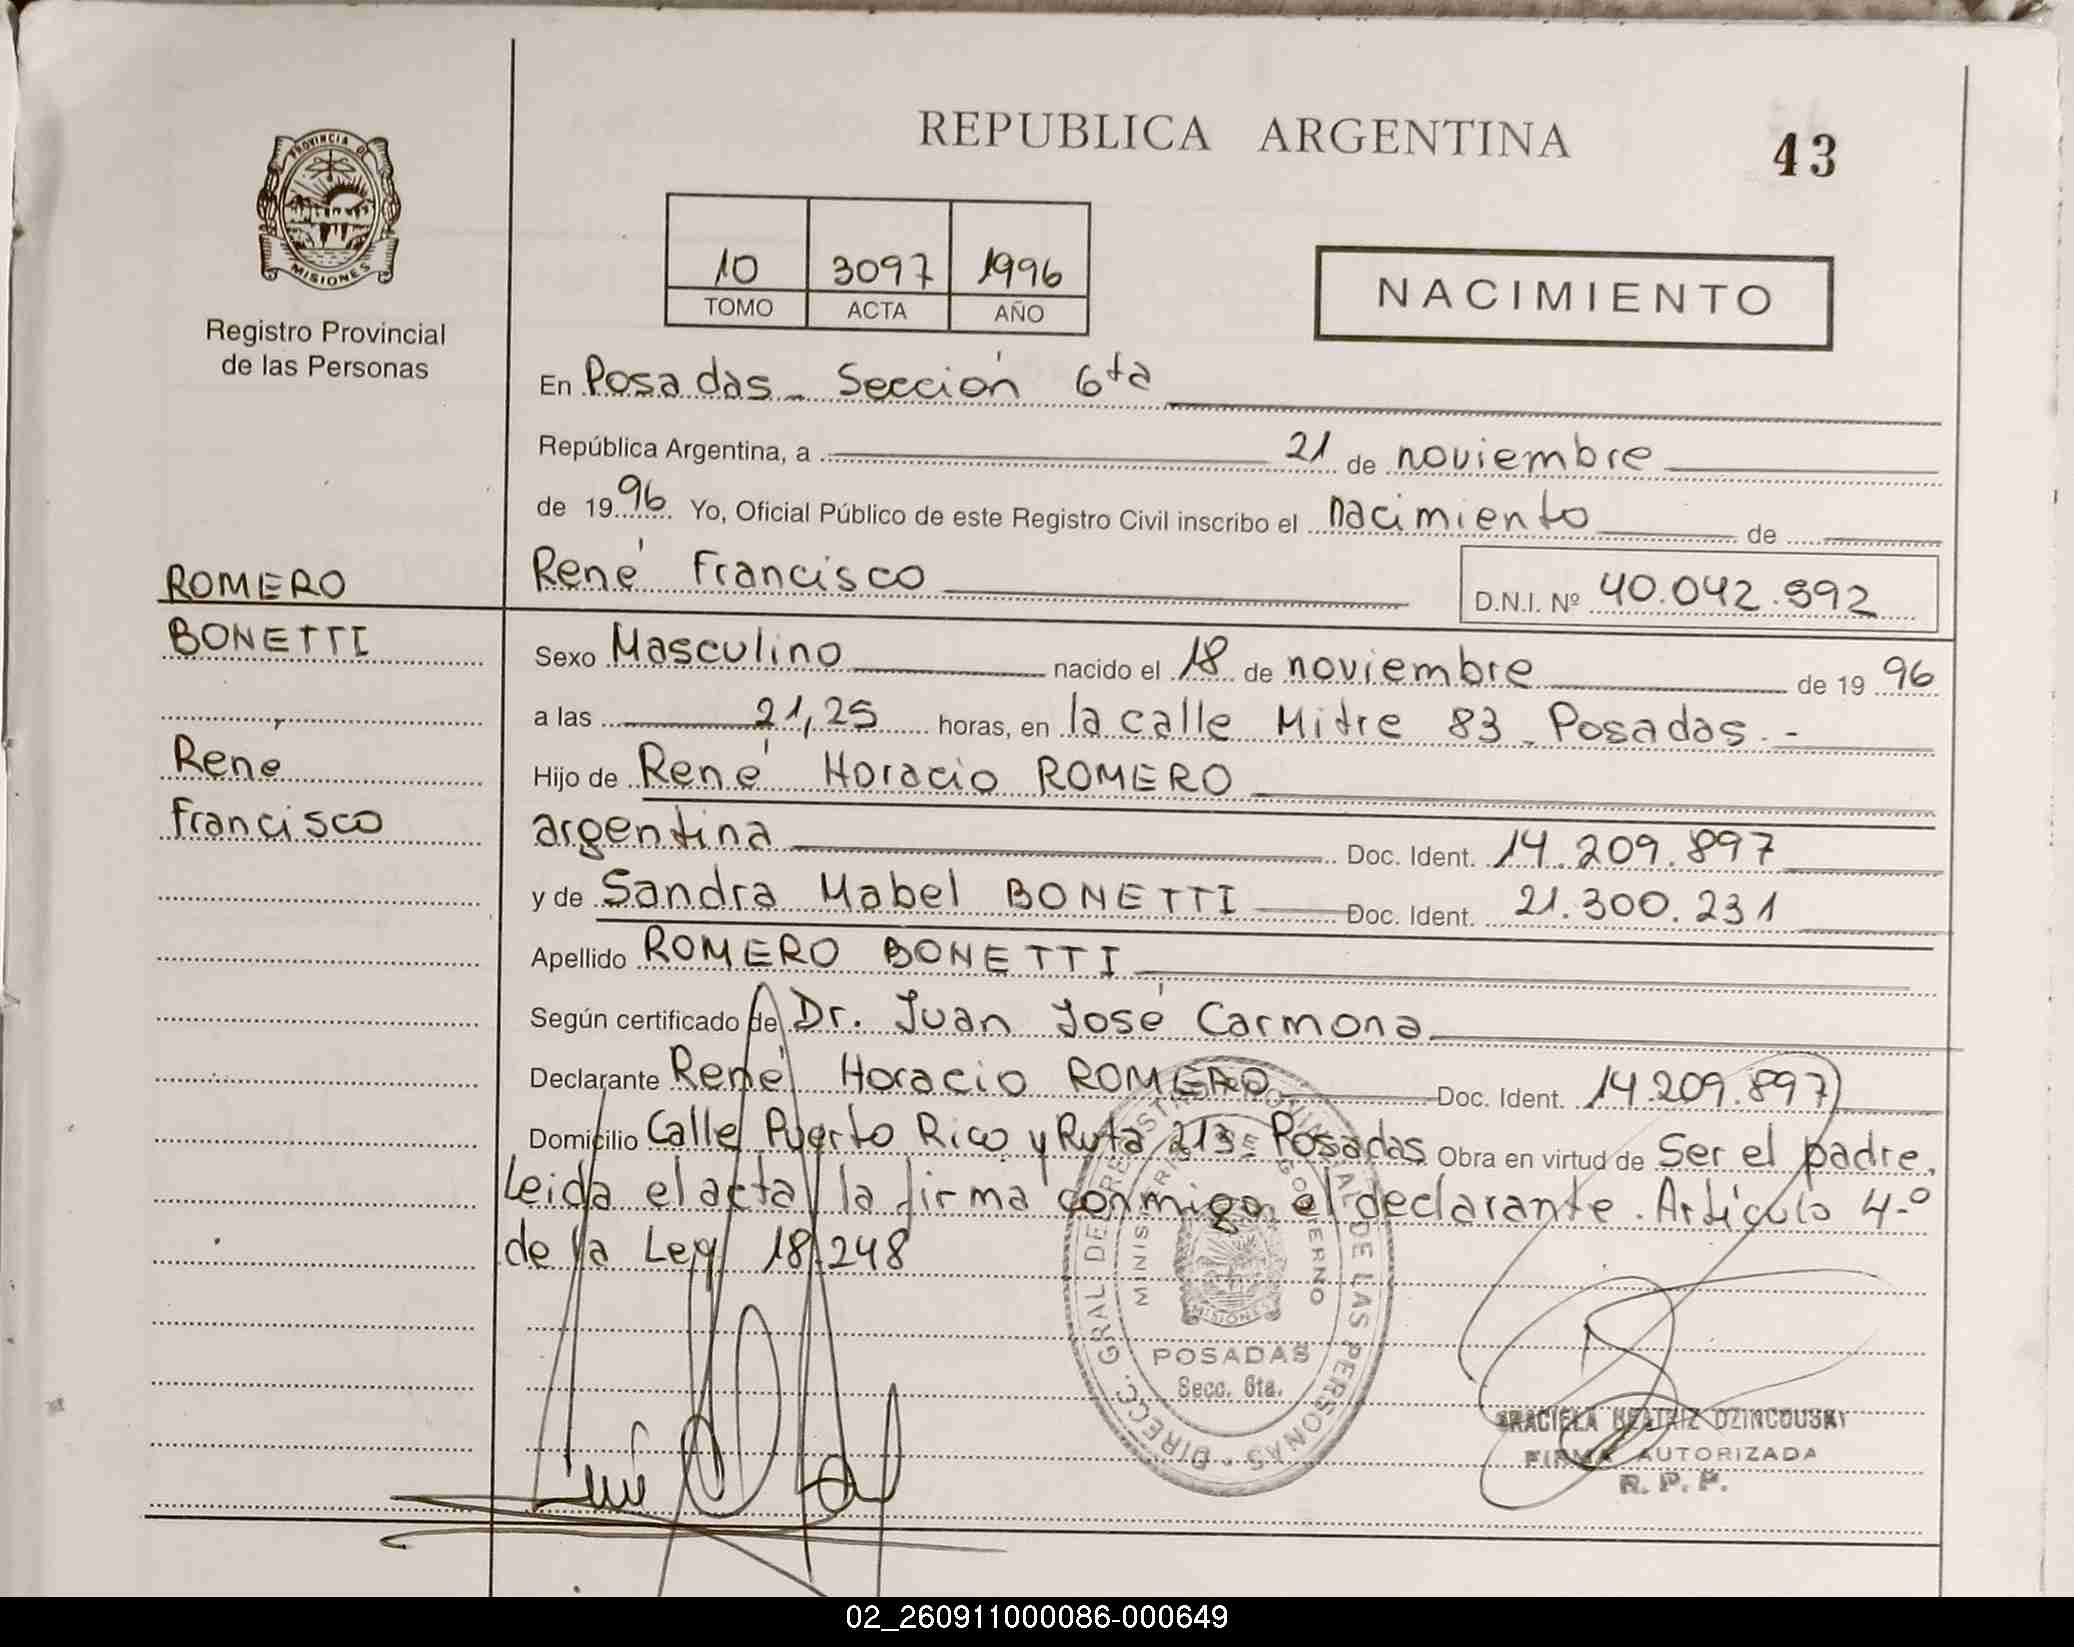 REPUBLICA ARGENTINA
43
PROVINCIA DE
MISIONES
Registro Provincial
de las Personas
10 3097 1996
TOMO ACTA AÑO
NACIMIENTO
En Posadas - Sección 6ta
República Argentina, a 21 de noviembre
de 1996 Yo, Oficial Público de este Registro Civil inscribo el nacimiento de
ROMERO
René Francisco
D.N.I. Nº 40.042.592
BONETTI
Sexo Masculino nacido el 18 de noviembre de 1996
a las 21,25 horas, en la calle Mitre 83 - Posadas.-
René
Hijo de René Horacio ROMERO
Francisco
argentina Doc. Ident. 14.209.897
y de Sandra Mabel BONETTI Doc. Ident. 21.300.231
Apellido ROMERO BONETTI
Según certificado de Dr. Juan José Carmona
Declarante René Horacio ROMERO Doc. Ident. 14.209.897
Domicilio Calle Puerto Rico y Ruta 213 - Posadas Obra en virtud de ser el padre.
Leida el acta la firma conmigo el declarante. Artículo 4º
de la Ley 18.248
DIRECC. GRAL DEL REGISTRO PROVINCIAL DE LAS PERSONAS
MINISTERIO DE GOBIERNO
MISIONES
POSADAS
Secc. 6ta.
GRACIELA BEATRIZ DZINCOUSKY
FIRMA AUTORIZADA
R. P. P.
02_260911000086-000649